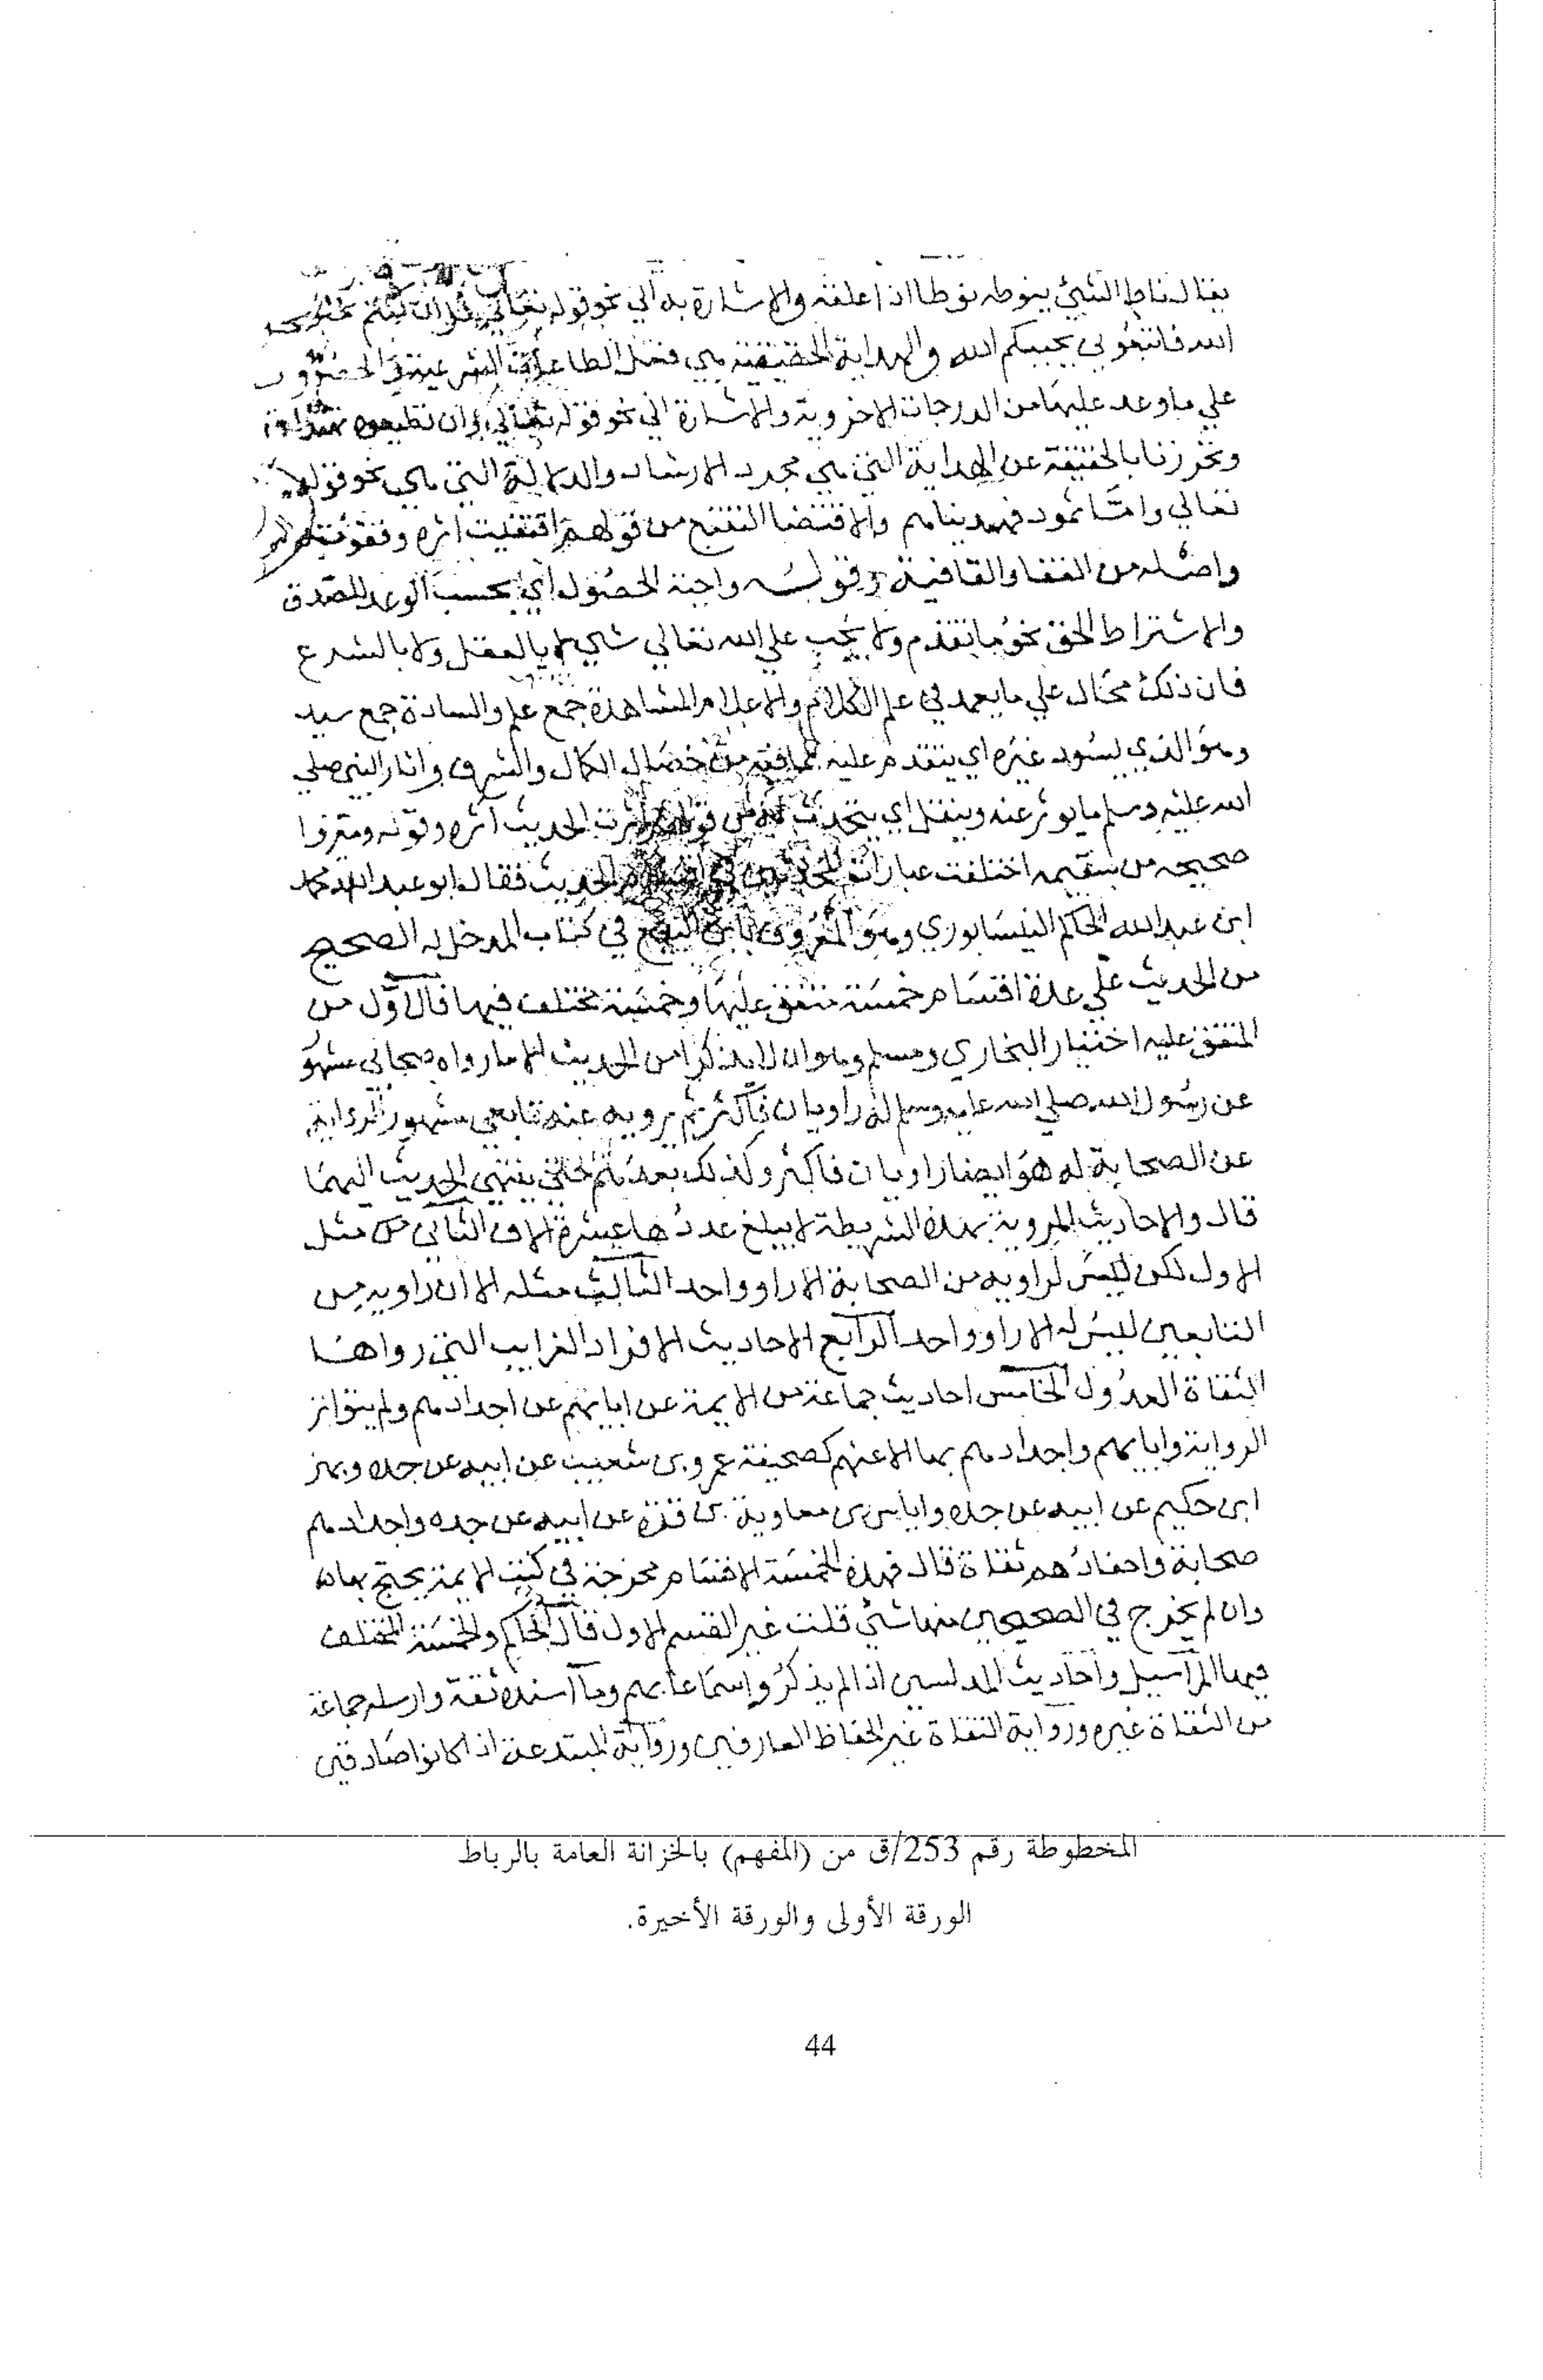 يقال ناط الشيئ ينوطه نوطا اذا علقه والاشارة به الي نحو قوله تعالي قل ان كنتم تحبون
الله فاتبعوني يحببكم الله والهداية الحقيقية هي فعل الطاعات الشرعية والحصول
علي ما وعد عليها من الدرجات الاخروية والاشارة الي نحو قوله تعالي وان تطيعوه تهتدوا
وتحرزنا بالحقيقة عن الهداية التي هي مجرد الارشاد والدلالة التي هي نحو قوله
تعالي واما ثمود فهديناهم والاقتفا التتبع من قولهم اقتفيت اثره وقفوته
واصله من القفا والقافية وقوله واجبة الحصول اي بحسب الوعد الصدق
والاشتراط الحق نحو ما تقدم ولا يجب علي الله تعالي شي لا بالعقل ولا بالشرع
فان ذلك محال علي ما يعهد في علم الكلام والاعلام المشاهدة جمع علم والسادة جمع سيد
وهو الذي يسود غيره اي يتقدم عليه بما فيه من خصال الكمال والشرف واثار النبي صلي
الله عليه وسلم ما يوثر عنه وينقل اي يتحدث به من قولهم اثرت الحديث اثره وقوله وميزوا
صحيحه من سقيمه اختلفت عبارات المحدثين في اقسام الحديث فقال ابو عبد الله محمد
ابن عبد الله الحاكم النيسابوري وهو المعروف بابن البيع في كتاب المدخل له الصحيح
من الحديث علي عدة اقسام خمسة متفق عليها وخمسة مختلف فيها فالاول من
المتفق عليه اختيار البخاري ومسلم وهو ان لا يذكرا من الحديث الا ما رواه صحابي مشهو
عن رسول الله صلي الله عليه وسلم له راويان فاكثر ثم يرويه عنه تابعي مشهور الرواية
عن الصحابة له هو ايضا راويان فاكثر وكذلك بعدهم حتي ينتهي الحديث اليهما
قال والاحاديث المروية بهذه الشريطة لا يبلغ عددها عشرة الاف الثاني مثل
الاول لكن ليس لراويه من الصحابة الا راو واحد الثالث مثله الا ان راويه من
التابعين ليس له الا راو واحد الرابع الاحاديث الافراد الغرايب التي رواها
الثقاة العدول الخامس احاديث جماعة من الايمة عن ابايهم عن اجدادهم ولم يتواتر
الرواية وابايهم واجدادهم بها الا عنهم كصحيفة عمرو بن شعيب عن ابيه عن جده وبهز
ابن حكيم عن ابيه عن جده واياس بن معاوية بن قرة عن ابيه عن جده واجدادهم
صحابة واحفادهم ثقاة قال فهذه الخمسة الاقسام مخرجة في كتب الايمة يحتج بها
وان لم يخرج في الصحيحين منها شئ قلت غير القسم الاول قال الحاكم والخمسة المختلف
فيها المراسيل واحاديث المدلسين اذا لم يذكروا سماعاتهم وما اسنده ثقة وارسله جماعة
من الثقاة غيره ورواية الثقاة غير الحفاظ العارفين ورواية المبتدعة اذا كانوا صادقين
المخطوطة رقم 253/ق من (المفهم) بالخزانة العامة بالرباط
الورقة الأولى والورقة الأخيرة.
44